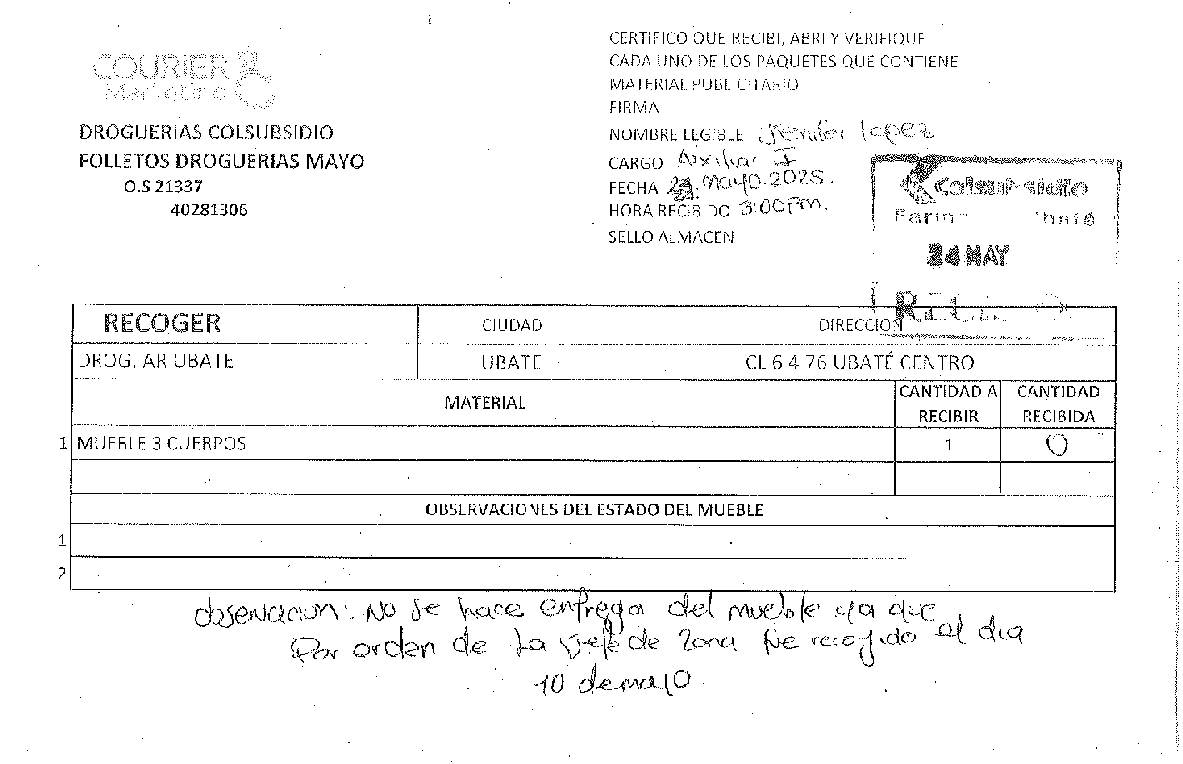 COURIER
Marketing
DROGUERIAS COLSUBSIDIO
FOLLETOS DROGUERIAS MAYO
O.S 21337
40281306
CERTIFICO QUE RECIBI, ABRI Y VERIFIQUE
CADA UNO DE LOS PAQUETES QUE CONTIENE
MATERIAL PUBLICITARIO
FIRMA
NOMBRE LEGIBLE Jennifer Lopez
CARGO Auxiliar I
FECHA Mayo. 2025.
HORA RECIBIDO 3:00 Pm.
SELLO ALMACEN
Colsubsidio
24 MAY
RECOGER CIUDAD DIRECCION
DROG. AR UBATE UBATE CL 6 4 76 UBATÉ CENTRO
MATERIAL CANTIDAD A RECIBIR CANTIDAD RECIBIDA
1 MUEBLE 3 CUERPOS 1 0
OBSERVACIONES DEL ESTADO DEL MUEBLE
1
2
observacion: No se hace entrega del mueble ya que
Por orden de La Jefe de Zona fue recogido el dia
10 de mayo